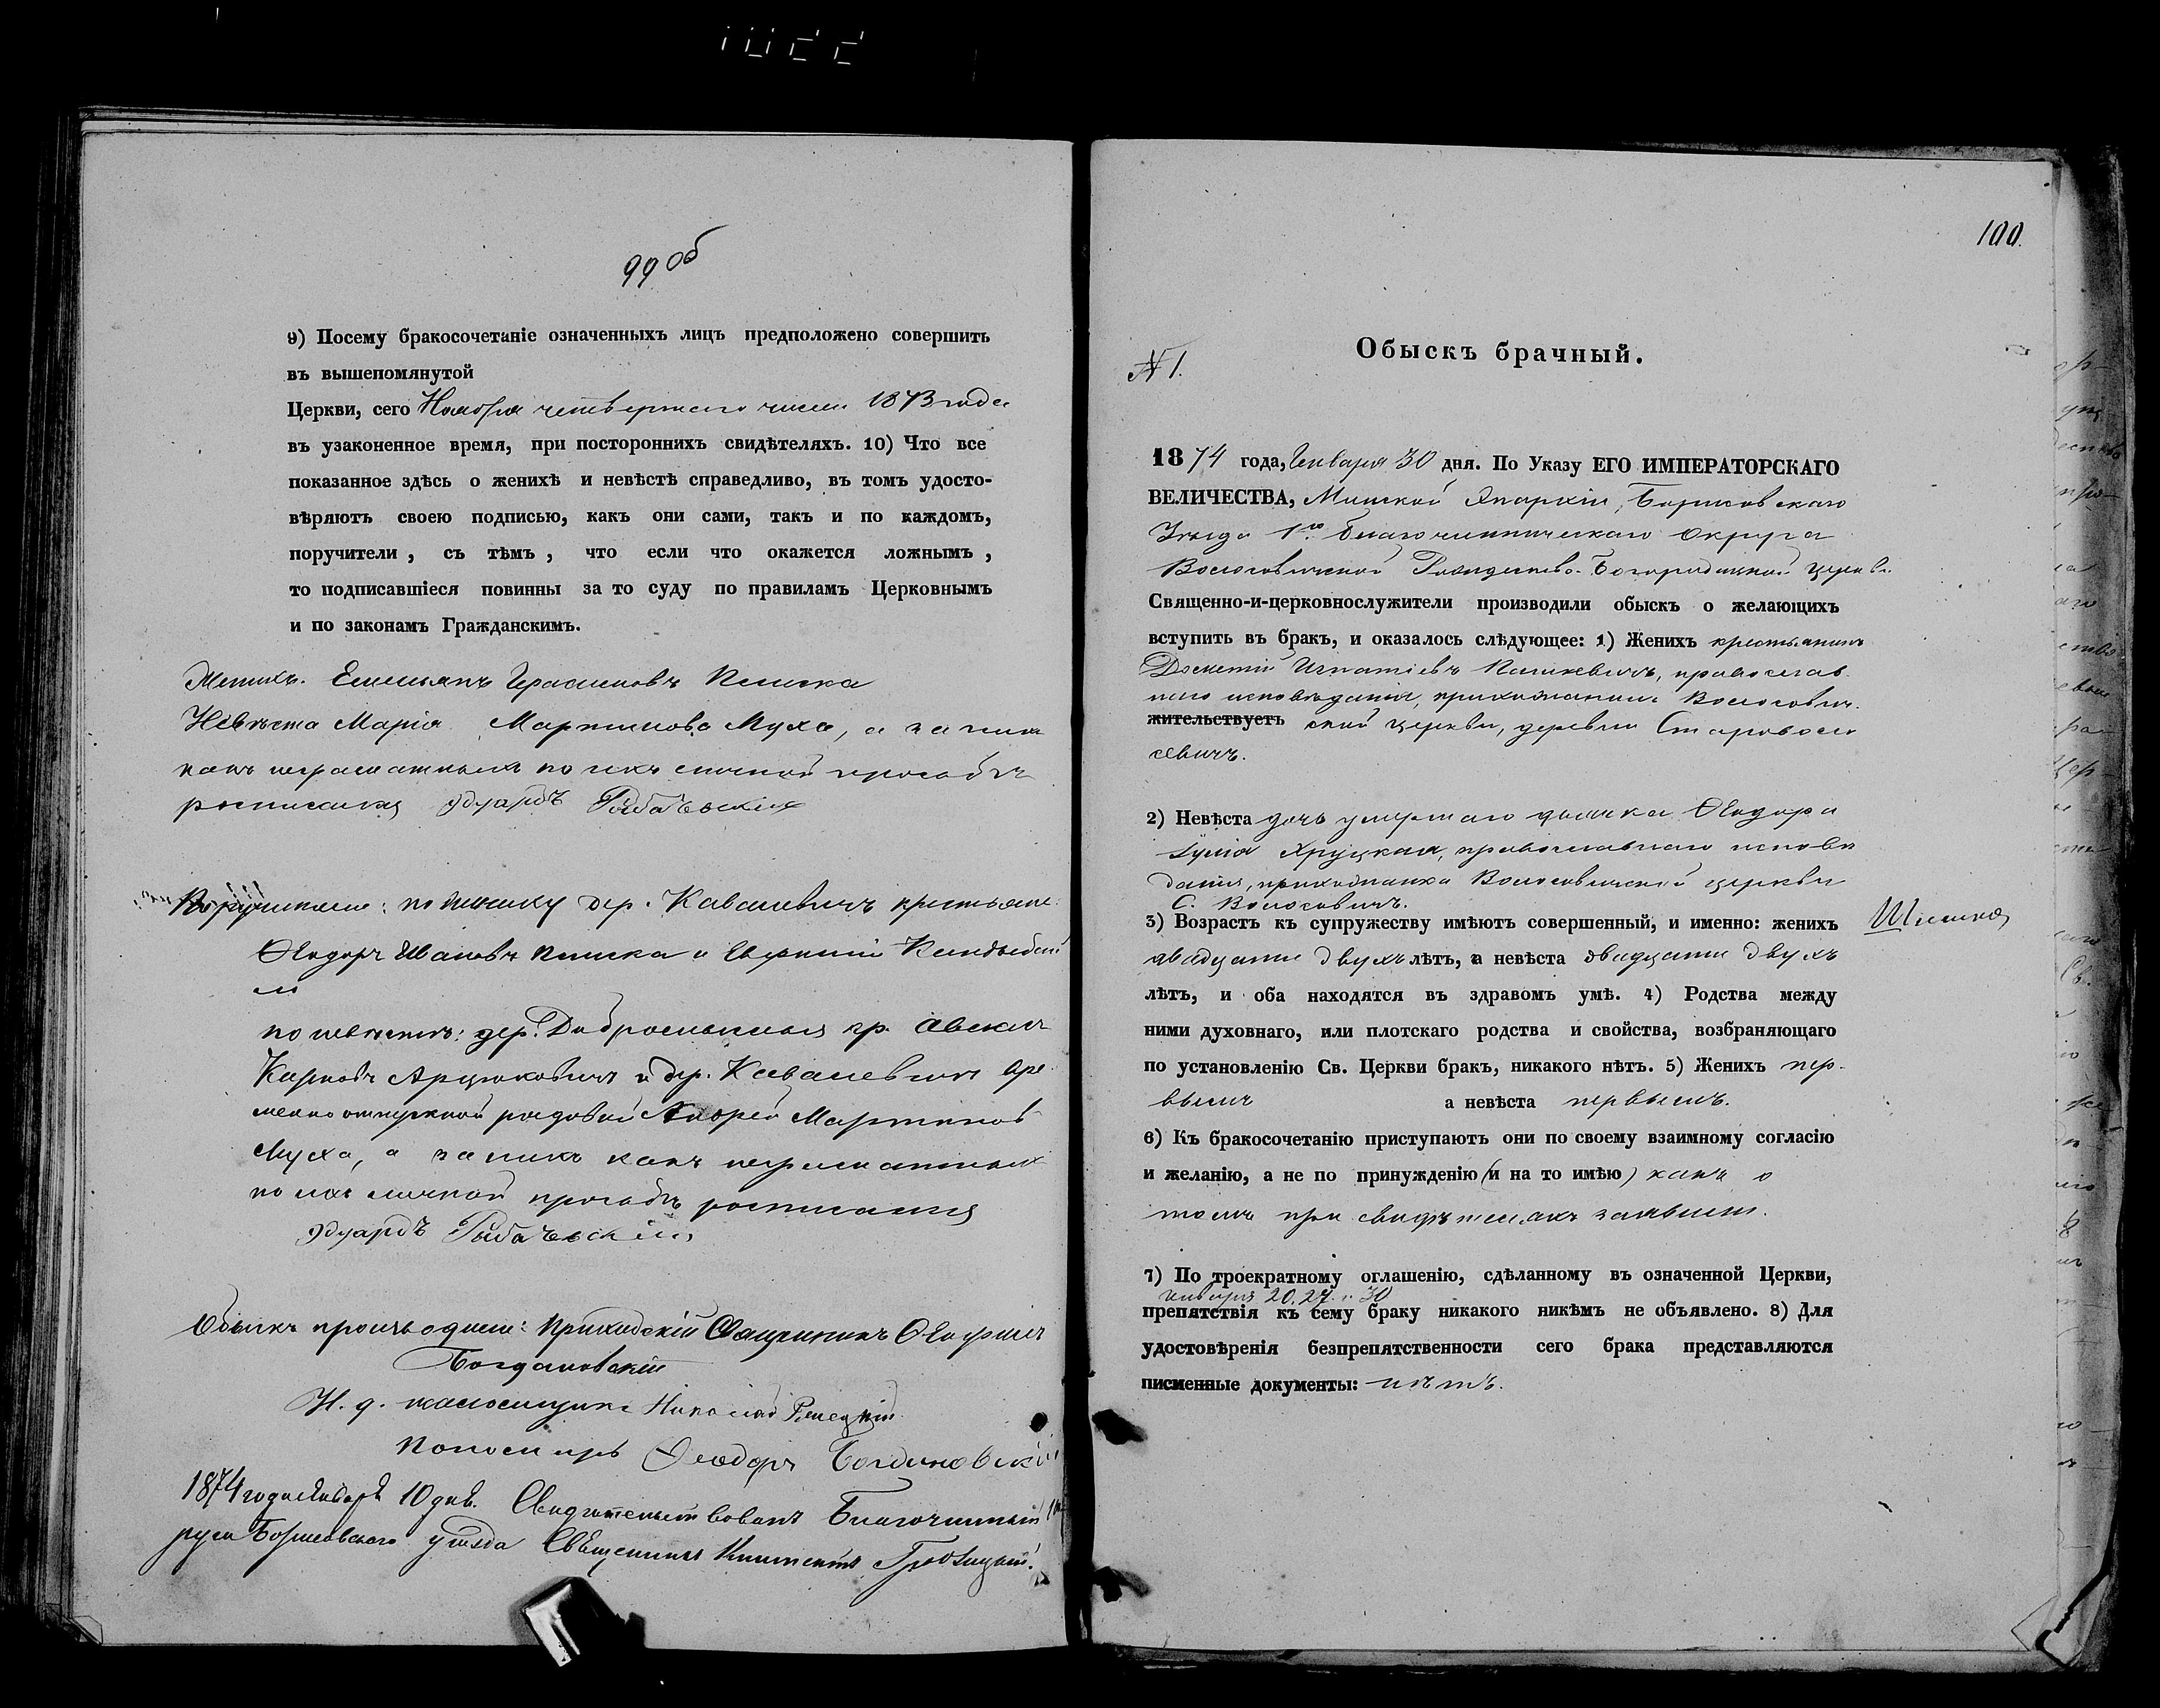 99 об
9) Посему бракосочетаніе означенныхъ лицъ предположено совершить
въ вышепомянутой
Церкви, сего Ноября четвертаго числа 1873 года
въ узаконенное время, при постороннихъ свидѣтеляхъ. 10) Что все
показанное здѣсь о женихѣ и невѣстѣ справедливо, въ томъ удосто-
вѣряютъ своею подписью, какъ они сами, такъ и по каждомъ,
поручители, съ тѣмъ, что если что окажется ложнымъ,
то подписавшіеся повинны за то суду по правиламъ Церковнымъ
и по законамъ Гражданскимъ.
Женихъ. Емельянъ Герасимовъ
Невѣста Марія Мартинова Муха, а за нихъ
какъ неграматныхъ по ихъ личной просьбѣ
росписался Эдуардъ
Поручители: по жениху дер. Кавалевичъ крестьяне:
Ѳеодоръ Ивановъ и
по невѣстѣ: дер. кр.
Карповъ и дер. Кавалевичъ вре-
менно отпускной рядовой Андрей Мартиновъ
Муха, а за нихъ какъ неграматныхъ
по ихъ личной просьбѣ росписался
Эдуардъ
Обыскъ производили: Приходскій Священникъ
Богдановскій
И. д. псаломщика Николай
Пономарь Ѳеодоръ Богдановскій
1874 года Января 10 дня. Свидѣтельствовалъ Благочинный
Борисовскаго уѣзда Священникъ
100.
№ 1.
Обыскъ брачный.
1874 года, Января 30 дня. По Указу ЕГО ИМПЕРАТОРСКАГО
ВЕЛИЧЕСТВА, Минской Епархіи, Борисовскаго
Уѣзда 1го благочинническаго округа
Волосовичской Рождество-Богородицкой церкви
Священно-и-церковнослужители производили обыскъ о желающихъ
вступить въ бракъ, и оказалось слѣдующее: 1) Женихъ крестьянинъ
Игнатіевъ православ-
наго исповѣданія, прихожанинъ Волосович-
жительствуетъ ской церкви, деревни Староволо
севичъ.
2) Невѣста дочь умершаго дьячка Ѳеодора
Хруцкая, православнаго исповѣ
данія, прихожанка Волосовичской церкви
С. Волосовичъ.
3) Возрастъ къ супружеству имѣютъ совершенный, и именно: женихъ
двадцати двухъ лѣтъ, а невѣста двадцати двухъ
лѣтъ, и оба находятся въ здравомъ умѣ. 4) Родства между
ними духовнаго, или плотскаго родства и свойства, возбраняющаго
по установленію Св. Церкви бракъ, никакого нѣтъ. 5) Женихъ пер-
вымъ а невѣста первымъ.
6) Къ бракосочетанію приступаютъ они по своему взаимному согласію
и желанію, а не по принужденію (и на то имѣю) какъ о
томъ при свидѣтеляхъ заявили.
7) По троекратному оглашенію, сдѣланному въ означенной Церкви,
января 20. 27. и 30
препятствія къ сему браку никакого никѣмъ не объявлено. 8) Для
удостовѣренія безпрепятственности сего брака представляются
писменные документы: нѣтъ.